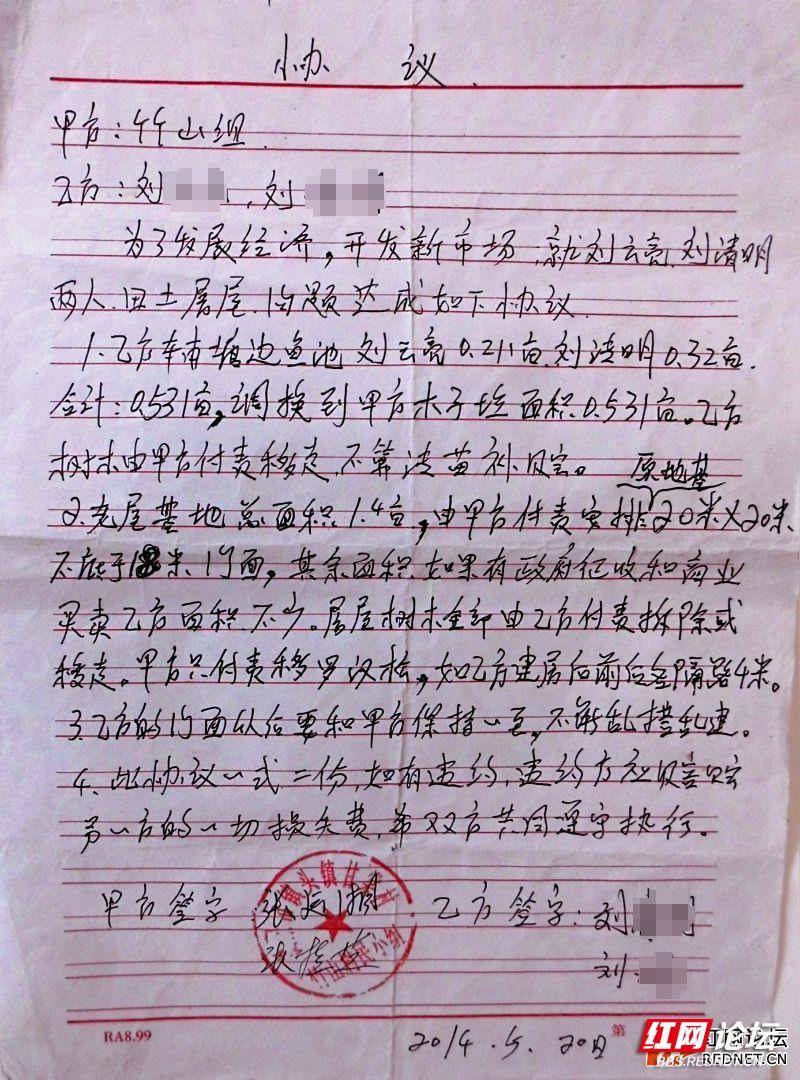 协 议
甲方：竹山组
乙方：刘 ，刘
为了发展经济，开发新市场，就刘云亮、刘清明
两人田土居屋问题达成如下协议
1、乙方车南塘边鱼池刘云亮0.211亩刘清明0.32亩.
合计：0.531亩，调换到甲方木子垅面积0.531亩。乙方
树木由甲方付责移走，不算清苗补尝。
原地基
2.老屋基地总面积1.4亩，由甲方付责安排20米X20米、
不底于18米门面，其余面积如果有政府征收和商业
买卖乙方面积不少。居屋树木全部由乙方付责拆除或
移走。甲方只付责移罗汉松，如乙方建房后前后左隔路4米。
3.乙方的门面以后要和甲方保持一至，不能乱搭乱建。
4、此协议一式二份，如有违约，违约方应赔尝
另一方的一切损失费，希双方共同遵守执行。
甲方签字 张 乙方签字：刘
刘
头镇
竹山村民小组
RA8.99
2014.5.20日
第
红网论坛
BBS.REDNET.CN
REDNET.CN